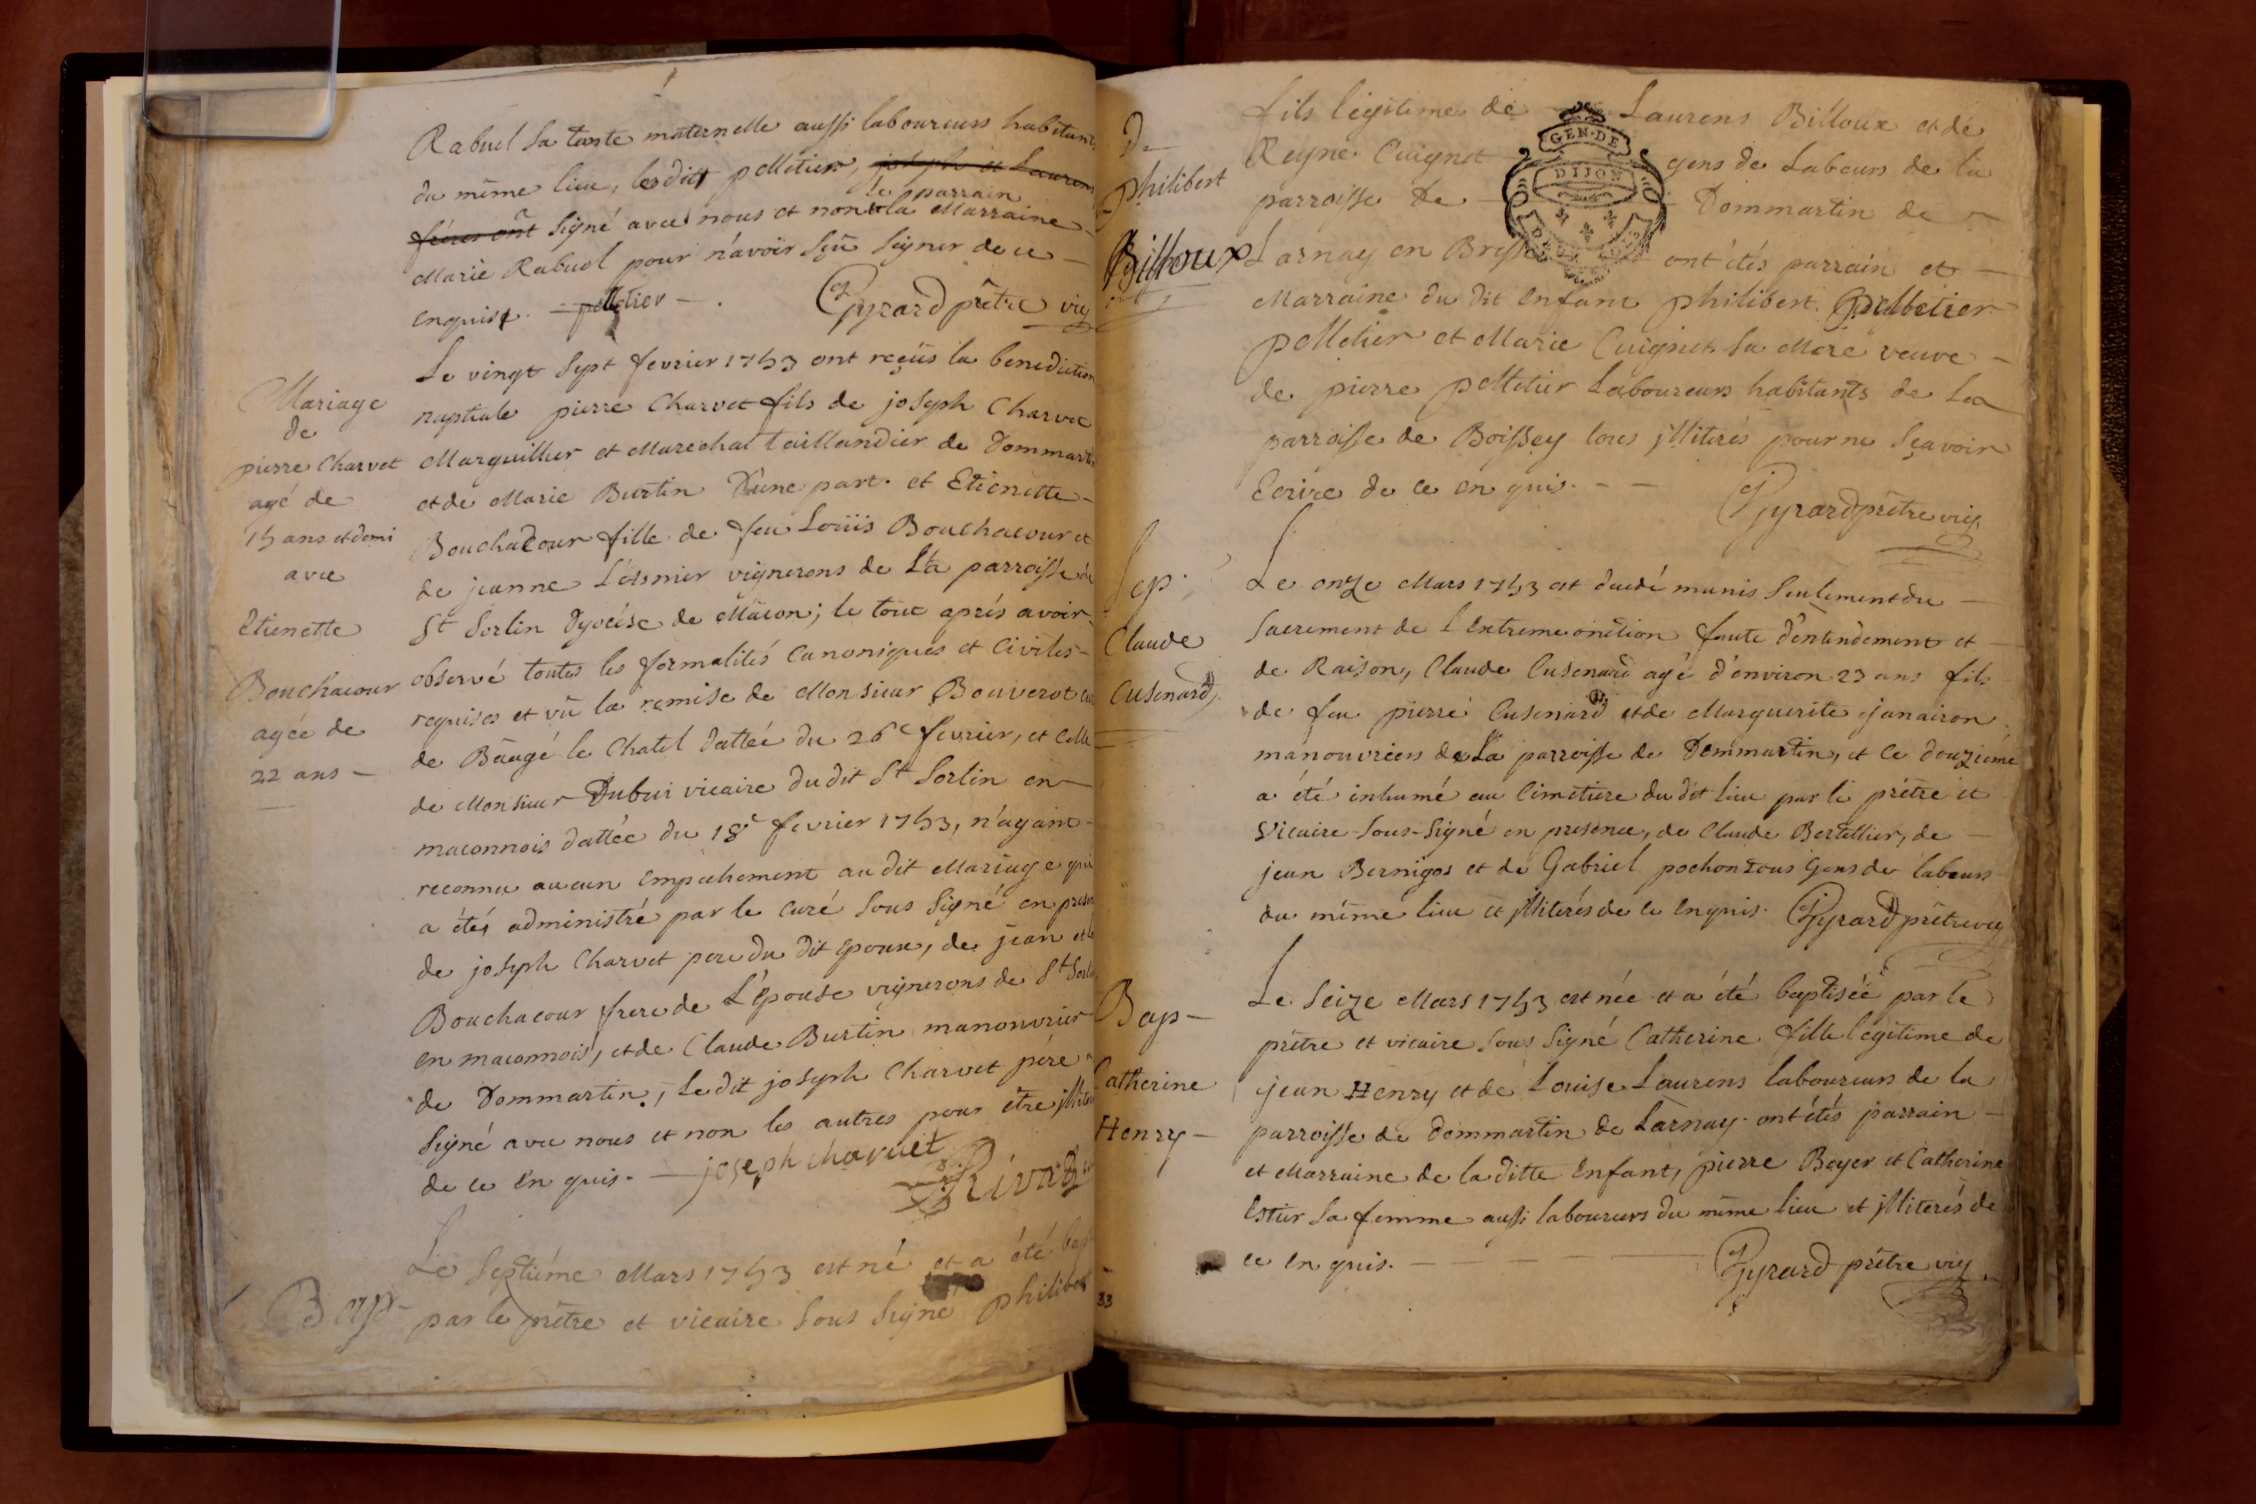 Rabuel sa tante maternelle aussi laboureurs habitants
du même lieu, lesdits pelletier, joseph et Laurens
le parrain
freres ont signé avec nous et non la Marraine
Marie Rabuel pour n'avoir sçu signer de ce
enquise. pelletier. Gyrard prêtre vic
Le vingt sept fevrier 1753 ont reçûs la benediction
nuptiale pierre Charvet fils de joseph Charvet
Marguillier et Marechal taillandier de Dommartin
et de Marie Burtin D'une part. et Etienette
Bouchacour fille de feu Loüis Bouchacour et
de jeanne Lésnier vignerons de La parroisse de
St Sorlin Dyocése de Mâcon; le tout aprés avoir
observé toutes les formalités Canoniques et Civiles
requises et vû la remise de Monsieur Bouverot curé
de Baugé le Chatel dattée du 26e fevrier, et Celle
de Monsieur Dubui vicaire du dit St Sorlin en
maconnois dattée du 18e fevrier 1753, n'ayant
reconnu aucun Empechement au dit Mariage qui
a étés administré par le Curé sous signé en presence
de joseph Charvet pere du dit Epoux, de jean et de
Bouchacour frere de L'épouse vignerons de St Sorlin
en maconnois, et de Claude Burtin manouvrier
de Dommartin, Le dit joseph Charvet pére a
signé avec nous et non les autres pour être jlliterés
de ce En quis. joseph charvet Rivat
Le Septiéme Mars 1753 est né et a été bap
par le prêtre et vicaire sous signé philibert
Mariage
de
pierre Charvet
agé de
15 ans et demi
avec
Etienette
Bouchacour
agée de
22 ans
Bap
fils légitime de Laurens Billoux et de
Reyne Cuignet gens de Labeurs de la
parroisse de Dommartin de
Larnay en Bresse ont étés parrain et
Marraine du dit Enfant philibert pelletier
pelletier et Marie Cuignet sa Mere veuve
de pierre pelletier Laboureurs habitants de La
parroisse de Boissey tous jlliterés pour ne sçavoir
Ecrire de ce en quis. Gyrard prêtre vic
Le onze Mars 1753 est decedé munis seulement du
sacrement de L'extreme onction faute d'entendement et
de Raison, Claude Cusenard agé d'environ 23 ans fils
de feu pierre Cusenard et de Marguerite janairon
manouvriers de La parroisse de Dommartin, et ce douziéme
a été inhumé au Cimetiere du dit lieu par le prêtre et
vicaire sous-signé en presence, de Claude Bertillier, de
jean Bernigos et de Gabriel pochon tous Gens de labeurs
du même lieu et jlliterés de ce Enquis. Gyrard prêtre vic
Le seize Mars 1753 est née et a été baptisée par le
prêtre et vicaire sous signé Catherine fille légitime de
jean Henry et de Louise Laurens laboureurs de la
parroisse de Dommartin de Larnay. ont étés parrain
et Marraine de la ditte Enfant, pierre Beyer et Catherine
Estur sa femme aussi laboureurs du même lieu et jlliterés de
ce En quis. Gyrard prêtre vic
De
philibert
Billoux
GEN·DE
DIJON
Sep.
Claude
Cusenard
Bap
Catherine
Henry
33